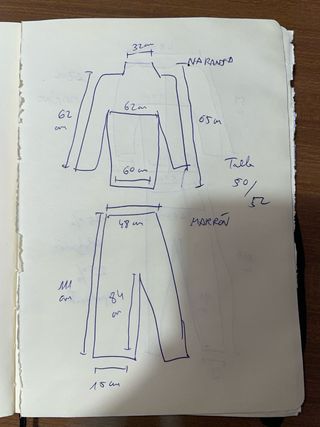 32cm
NARANJA
62
cm
62cm
65cm
60cm
Talla
50/
52
48cm
MARRÓN
111
cm
84
cm
15cm